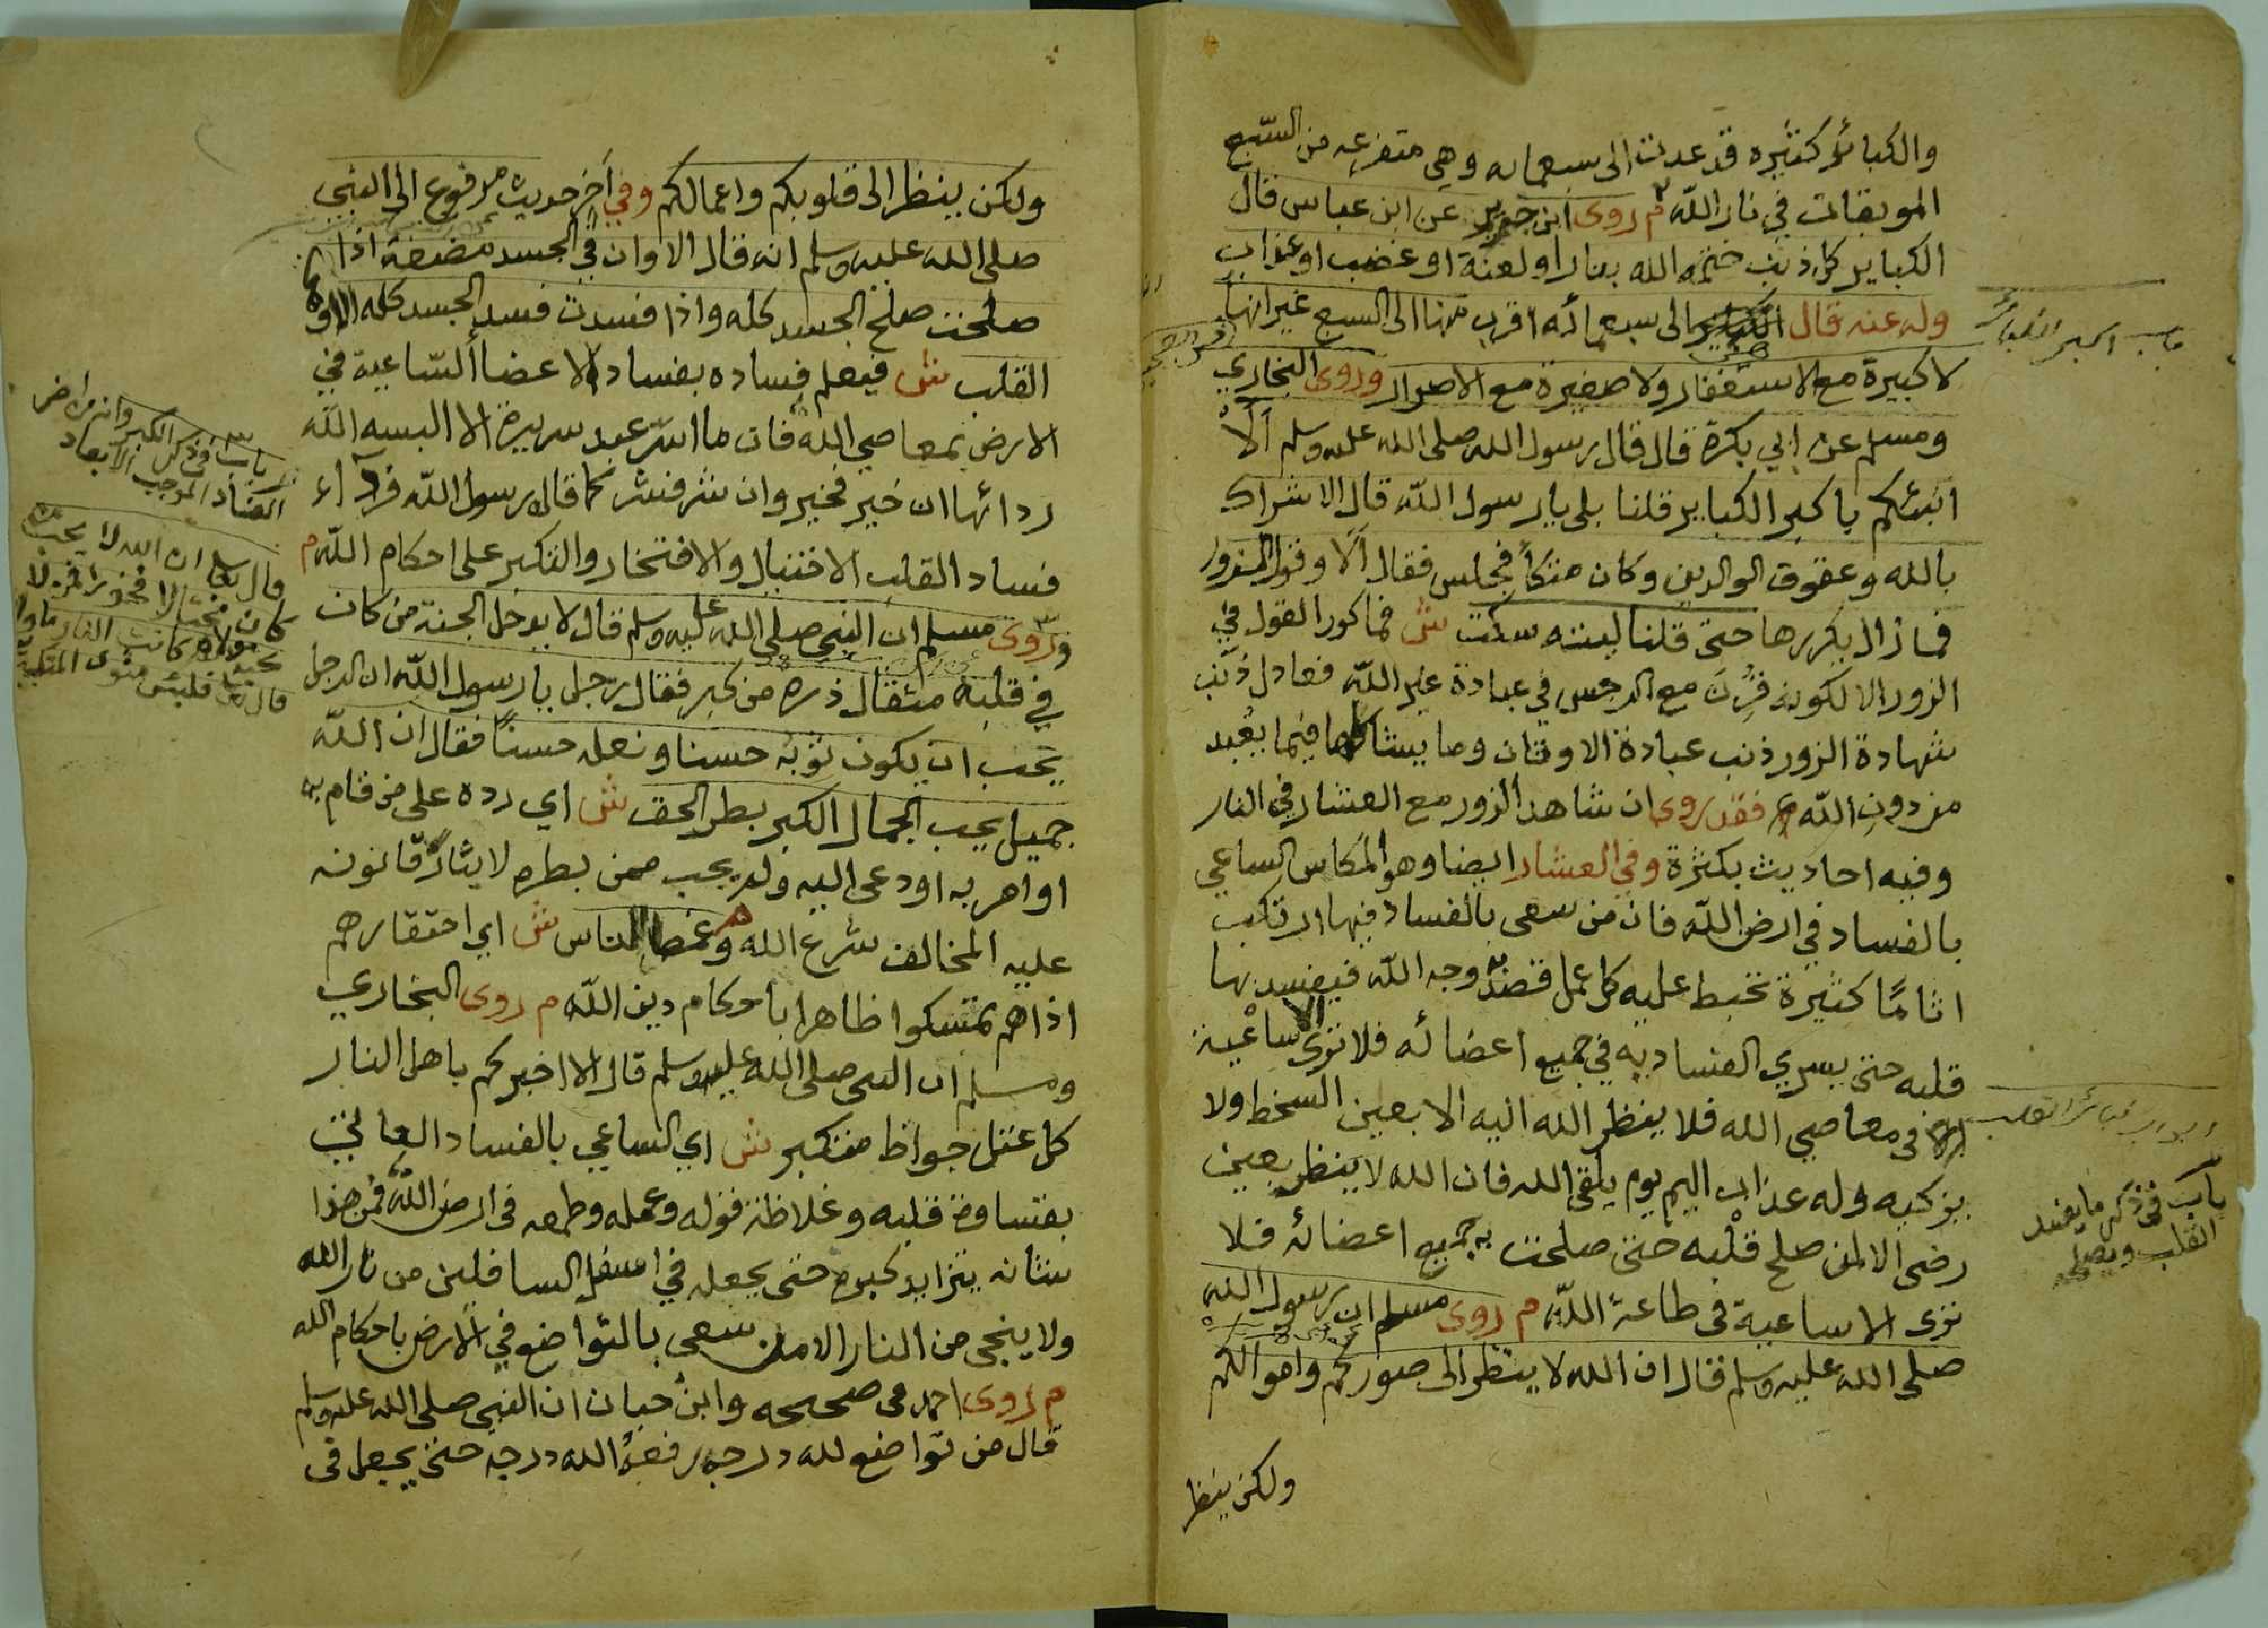 والكبائر كثيره قد عدت الى سبعمائه وهي متفرعه من السبع
الموبقات في نار الله م روى ابن جرير عن ابن عباس قال
الكباير كل ذنب ختمه الله بنار او لعنة او غضب او عذاب
وله عنه قال الى سبعمائه اقرب منها الى السبع غير انها
لا كبيرة مع الاستغفار ولا صغيرة مع الاصرار وروى البخاري
ومسلم عن ابي بكرة قال قال رسول الله صلى الله عليه وسلم ألا
انبئكم باكبر الكباير قلنا بلى يا رسول الله قال الاشراك
بالله وعقوق الوالدين وكان متكأ فجلس فقال ألا وقول الزور
فما زال يكررها حتى قلنا ليته سكت ش فما كور القول في
الزور الا لكونه قرن مع الرجس في عبادة غير الله فعادل ذنب
شهادة الزور ذنب عبادة الاوثان وما يشاكلها فيما يعبد
من دون الله م فقد روى ان شاهد الزور مع العشار في النار
وفيه احاديث بكثرة وفي العشار ايضا وهو المكاس الساعي
بالفساد في ارض الله فان من سعى بالفساد فيها ارتكب
اثامًا كثيرة تحبط عليه كل عمل قصد به وجه الله فيفسد بها
قلبه حتى يسري الفساد به في جميع اعضائه فلا ترى الا ساعية
في معاصي الله فلا ينظر الله اليه الا بعين السخط ولا
يزكيه وله عذاب اليم يوم يلقى الله فان الله لا ينظر بعين
رضى الا لمن صلح قلبه حتى صلحت به جميع اعضائه فلا
ترى الا ساعية في طاعة الله م روى مسلم ان رسول الله
صلى الله عليه وسلم قال ان الله لا ينظر الى صوركم واموالكم
ولكن ينظر
باب اكبر الكبائر
ابواب كبائر القلب
باب في ذكر ما يفسد
القلب ويصلحه
ولكن ينظر الى قلوبكم واعمالكم وفي آخر حديث مرفوع الى النبي
صلى الله عليه وسلم انه قال الا وان في الجسد مضغة اذا
صلحت صلح الجسد كله واذا فسدت فسد الجسد كله الا وهي
القلب ش فيعلم فساده بفساد الاعضا الساعية في
الارض بمعاصي الله فان ما اسر عبد سريرة الا البسه الله
ردائها ان خير فخير وان شر فشر كما قال رسول الله فرآء
فساد القلب الاختيال والافتخار والتكبر على احكام الله م
وروى مسلم ان النبي صلى الله عليه وسلم قال لا يدخل الجنة من كان
في قلبه مثقال ذره من كبر فقال رجل يا رسول الله ان الرجل
يحب ان يكون ثوبه حسنا ونعله حسنًا فقال ان الله
جميل يحب الجمال الكبر بطر الحق ش اي رده على من قام به
او امر به او دعى اليه ولم يحب ممن بطره لايثاره قانونه
عليه المخالف شرع الله م وغمط الناس ش اي احتقارهم
اذا هم تمسكوا ظاهرا باحكام دين الله م روى البخاري
ومسلم ان النبي صلى الله عليه وسلم قال الا اخبركم باهل النار
كل عتل جواظ متكبر ش اي الساعي بالفساد العاتي
بقساوة قلبه وغلاظة قوله وعمله وطمعه في ارض الله فمن هذا
شانه يتزايد كبره حتى يجعله في اسفل السافلين من نار الله
ولا ينجى من النار الا من سعى بالتواضع في الارض باحكام الله
م روى احمد في صحيحه وابن حبان ان النبي صلى الله عليه وسلم
قال من تواضع لله درجه رفعه الله درجه حتى يجعل في
باب في ذكر الكبر وانه من امراض
الفساد الموجب الابعاد
قال تعلى ان الله لا يحب من
كان مختالا فخورا
كانت النار ماواه
قال تعلى فلبئس مثوى المتكبرين